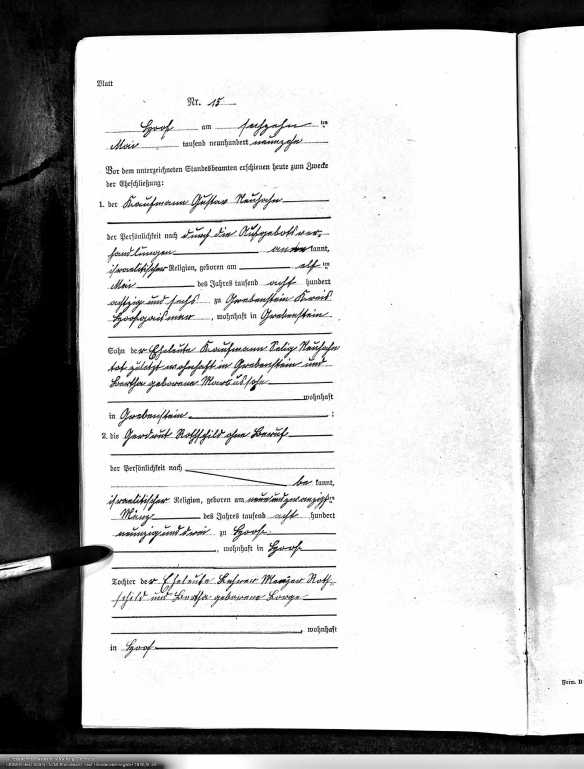 Blatt
Nr. 15
Hoof am sechzehn ten
Mai tausend neunhundert neunzehn
Vor dem unterzeichneten Standesbeamten erschienen heute zum Zwecke
der Eheschließung:
1. der Kaufmann Gustav Neuhahn
der Persönlichkeit nach durch die Aufgebotsver-
handlungen anerkannt,
israelitischer Religion, geboren am elften
Mai des Jahres tausend acht hundert
achtzig und sechs zu Grebenstein Kreis
Hofgeismar, wohnhaft in Grebenstein
Sohn der Eheleute Kaufmann Selig Neuhahn
tot zuletzt wohnhaft in Grebenstein und
Bertha geborene
wohnhaft
in Grebenstein ;
2. die Gerdrut Rothschild ohne Beruf
der Persönlichkeit nach
be kannt,
israelitischer Religion, geboren am neunundzwanzigsten
März des Jahres tausend acht hundert
neunzig und drei zu Hoof
, wohnhaft in Hoof
Tochter der Eheleute Lehrer Roth-
schild und Bertha geborene
, wohnhaft
in Hoof
Form. B